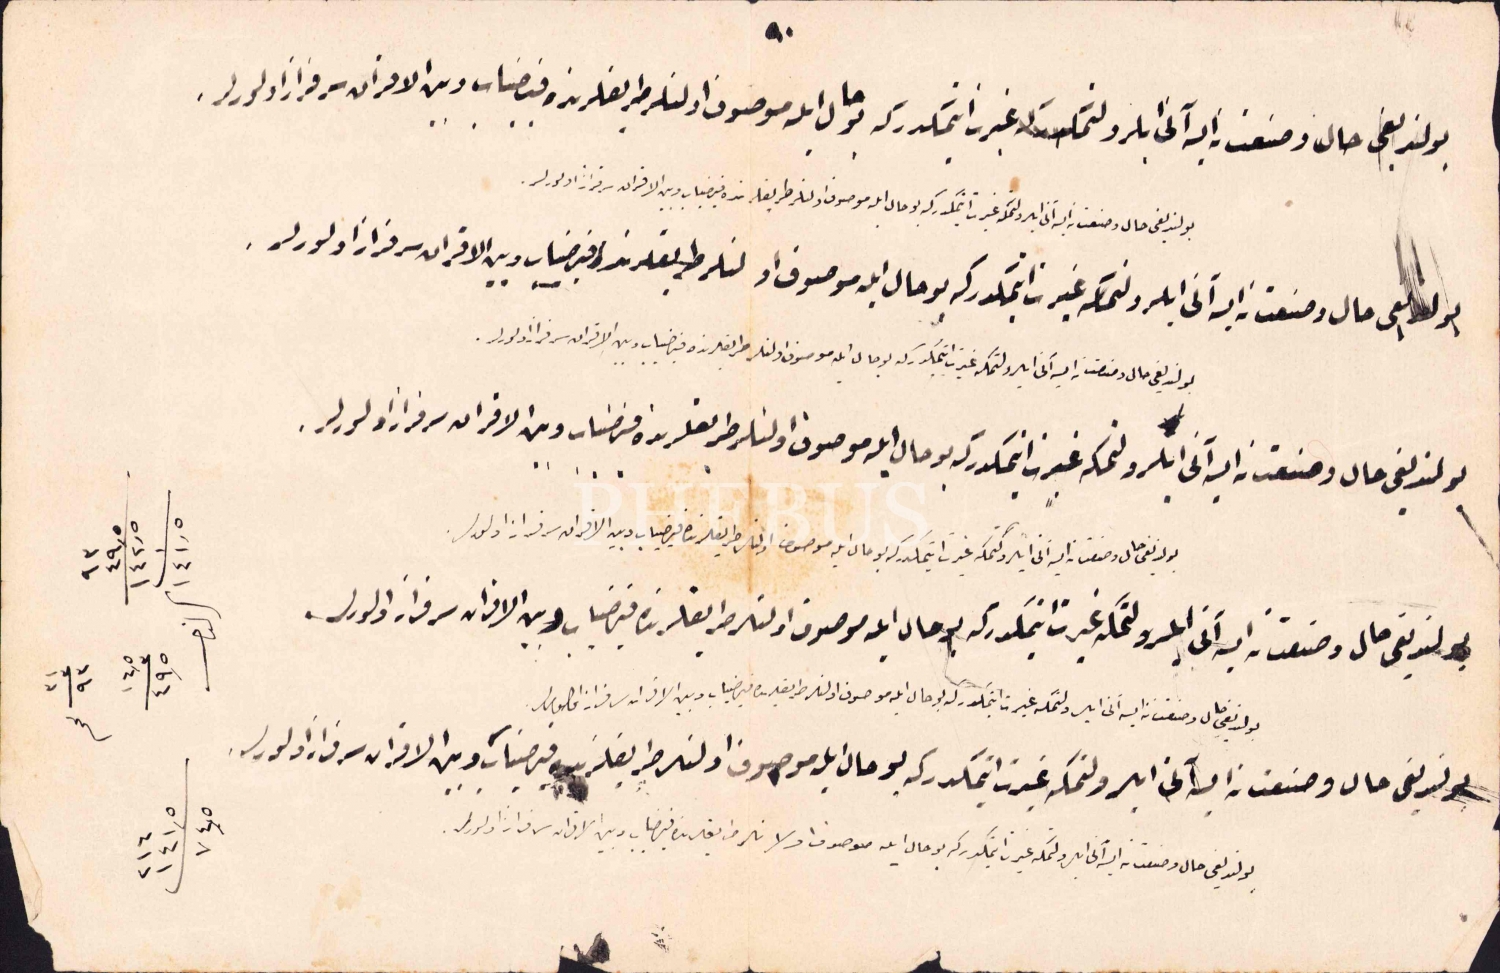 ٩٠
بولندیغی حال و صنعت نه ایسه آنی ایلرولتمكه غیرت ایتمكدر كه بو حال ایله موصوف اولنلر طریقلرنده فیضیاب و بین الاقران سرفراز اولورلر .
بولندیغی حال و صنعت نه ایسه آنی ایلرولتمكه غیرت ایتمكدر كه بو حال ایله موصوف اولنلر طریقلرنده فیضیاب و بین الاقران سرفراز اولورلر .
بولندیغی حال و صنعت نه ایسه آنی ایلرولتمكه غیرت ایتمكدر كه بو حال ایله موصوف اولنلر طریقلرنده فیضیاب و بین الاقران سرفراز اولورلر .
بولندیغی حال و صنعت نه ایسه آنی ایلرولتمكه غیرت ایتمكدر كه بو حال ایله موصوف اولنلر طریقلرنده فیضیاب و بین الاقران سرفراز اولورلر .
بولندیغی حال و صنعت نه ایسه آنی ایلرولتمكه غیرت ایتمكدر كه بو حال ایله موصوف اولنلر طریقلرنده فیضیاب و بین الاقران سرفراز اولورلر .
PHEBUS
بولندیغی حال و صنعت نه ایسه آنی ایلرولتمكه غیرت ایتمكدر كه بو حال ایله موصوف اولنلر طریقلرنده فیضیاب و بین الاقران سرفراز اولورلر .
بولندیغی حال و صنعت نه ایسه آنی ایلرولتمكه غیرت ایتمكدر كه بو حال ایله موصوف اولنلر طریقلرنده فیضیاب و بین الاقران سرفراز اولورلر .
بولندیغی حال و صنعت نه ایسه آنی ایلرولتمكه غیرت ایتمكدر كه بو حال ایله موصوف اولنلر طریقلرنده فیضیاب و بین الاقران سرفراز
بولندیغی حال و صنعت نه ایسه آنی ایلرولتمكه غیرت ایتمكدر كه بو حال ایله موصوف اولنلر طریقلرنده فیضیاب و بین الاقران سرفراز اولورلر .
بولندیغی حال و صنعت نه ایسه آنی ایلرولتمكه غیرت ایتمكدر كه بو حال ایله موصوف اولانلر طریقلرنده فیضیاب و بین الاقران سرفراز اولورلر .